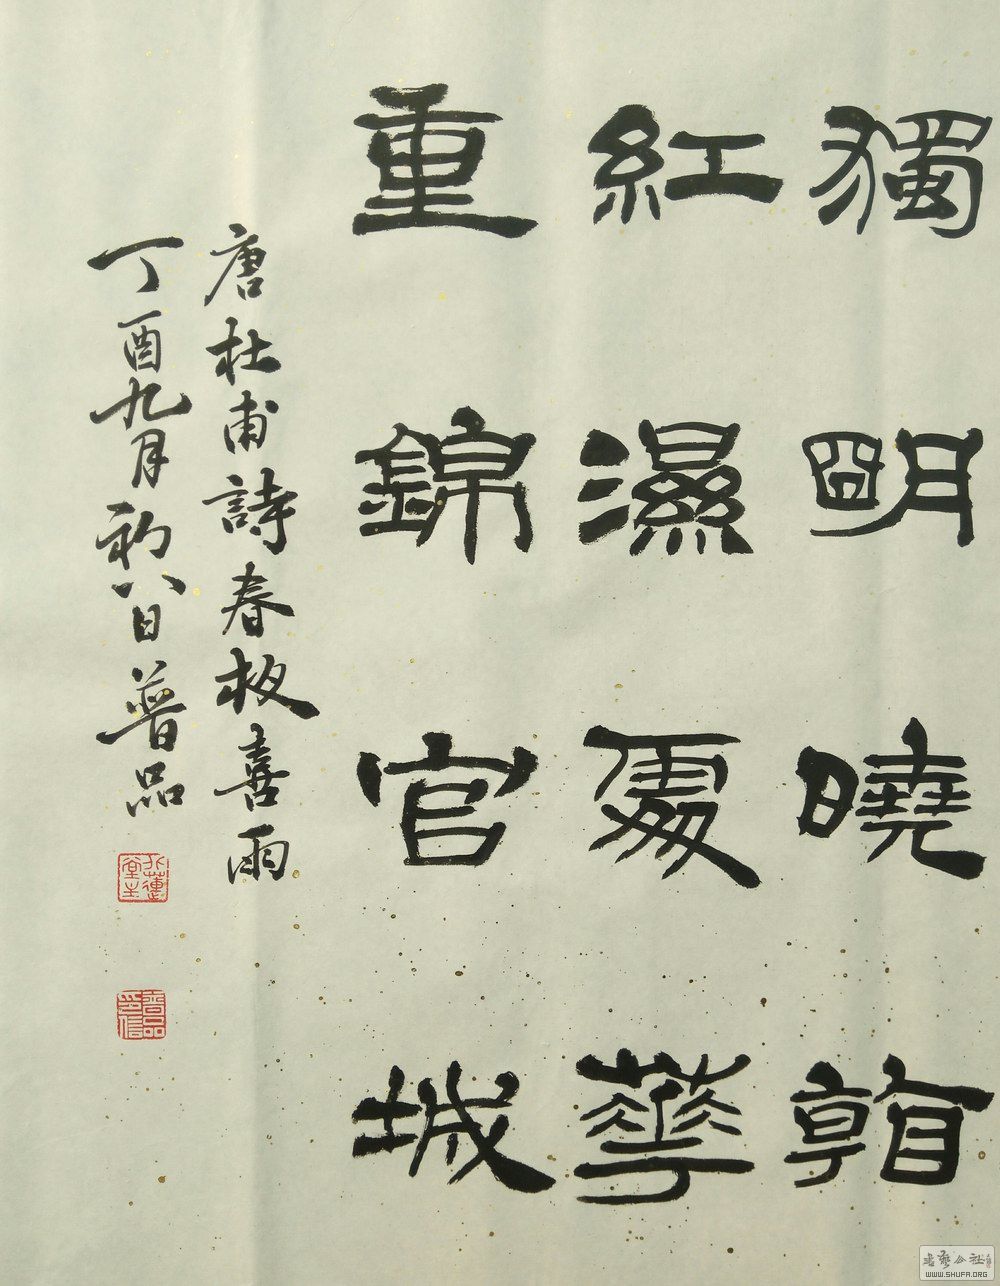 獨明曉看
紅濕處華
重錦官城
唐杜甫詩春夜喜雨
丁酉九月初八日普品
八蓮堂主
普品印信
書藝公社
WWW.SHUFA.ORG